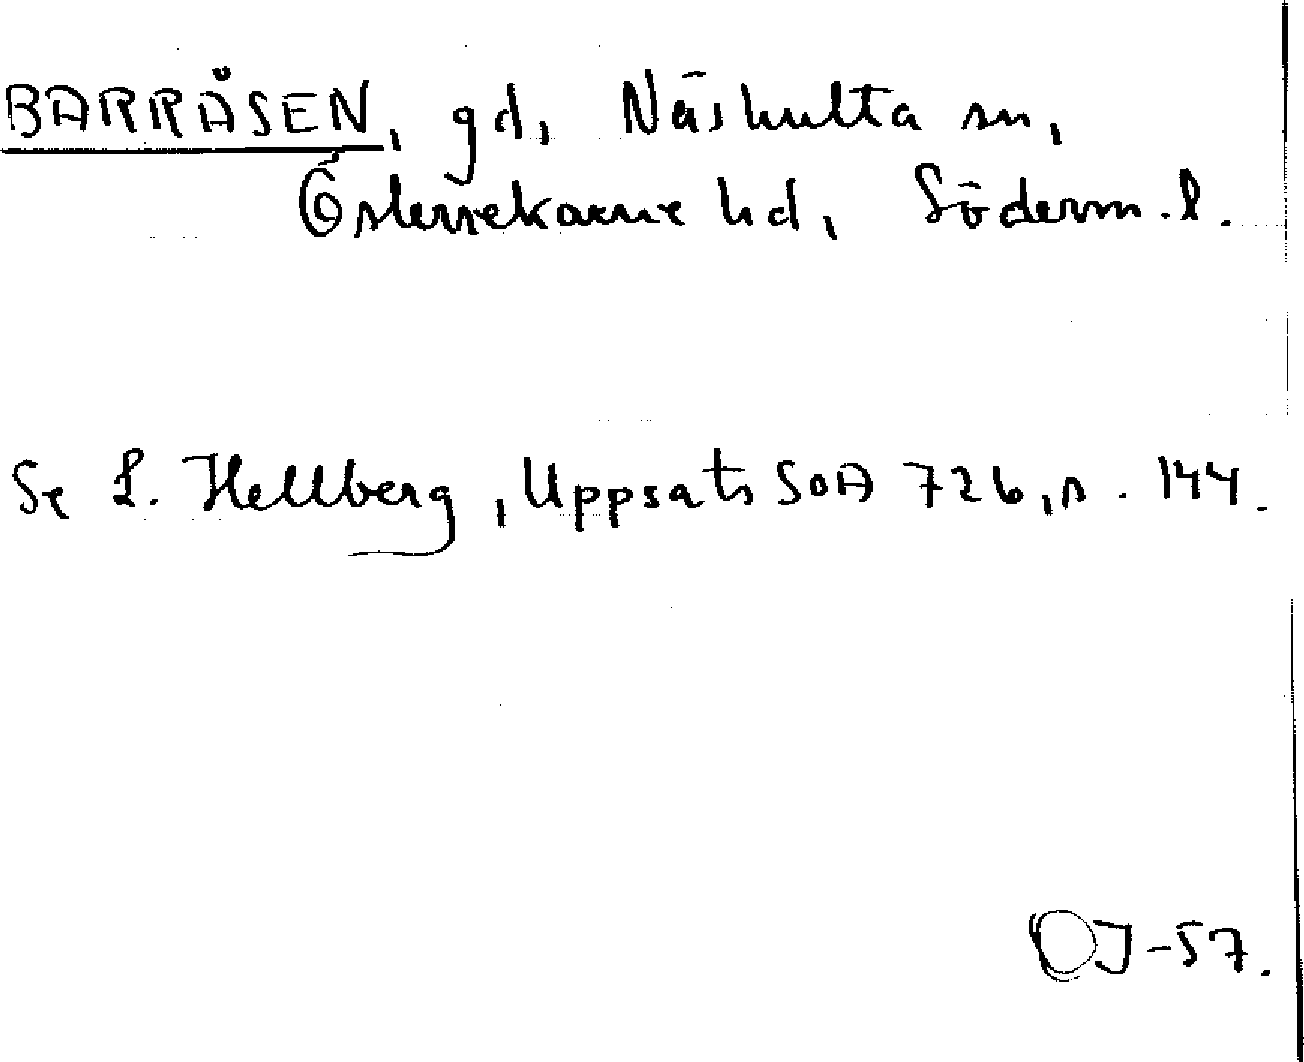 BARRÅSEN, gd, Näshulta sn,
Österrekarne hd, Söderm. l.
Se L. Hellberg, Uppsats SOA 726, s. 144.
OJ-57.